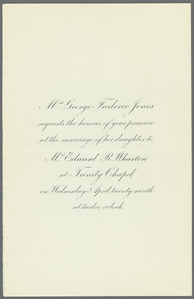 Mrs. George Frederic Jones
requests the honour of your presence
at the marriage of her daughter to
Mr. Edward R. Wharton
at Trinity Chapel
on Wednesday April twenty-ninth
at twelve o'clock.